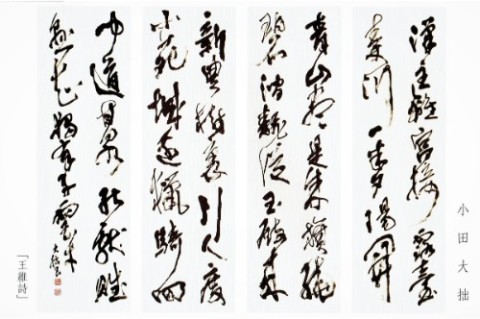 小田大拙
漢主離宮接露臺
秦川一半夕陽開
青山盡是朱旗繞
碧澗翻從玉殿来
新豊樹裏行人度
小苑城邊獵騎回
聞道甘泉能獻賦
懸知獨有子雲才
大拙
「王維詩」